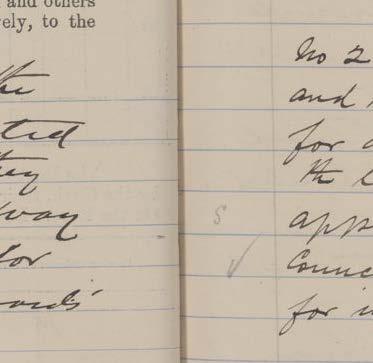 and others
ely, to the
the
ted
they
way
for
ards'
No 2
and
for a
the L
app
S
Counc
for i